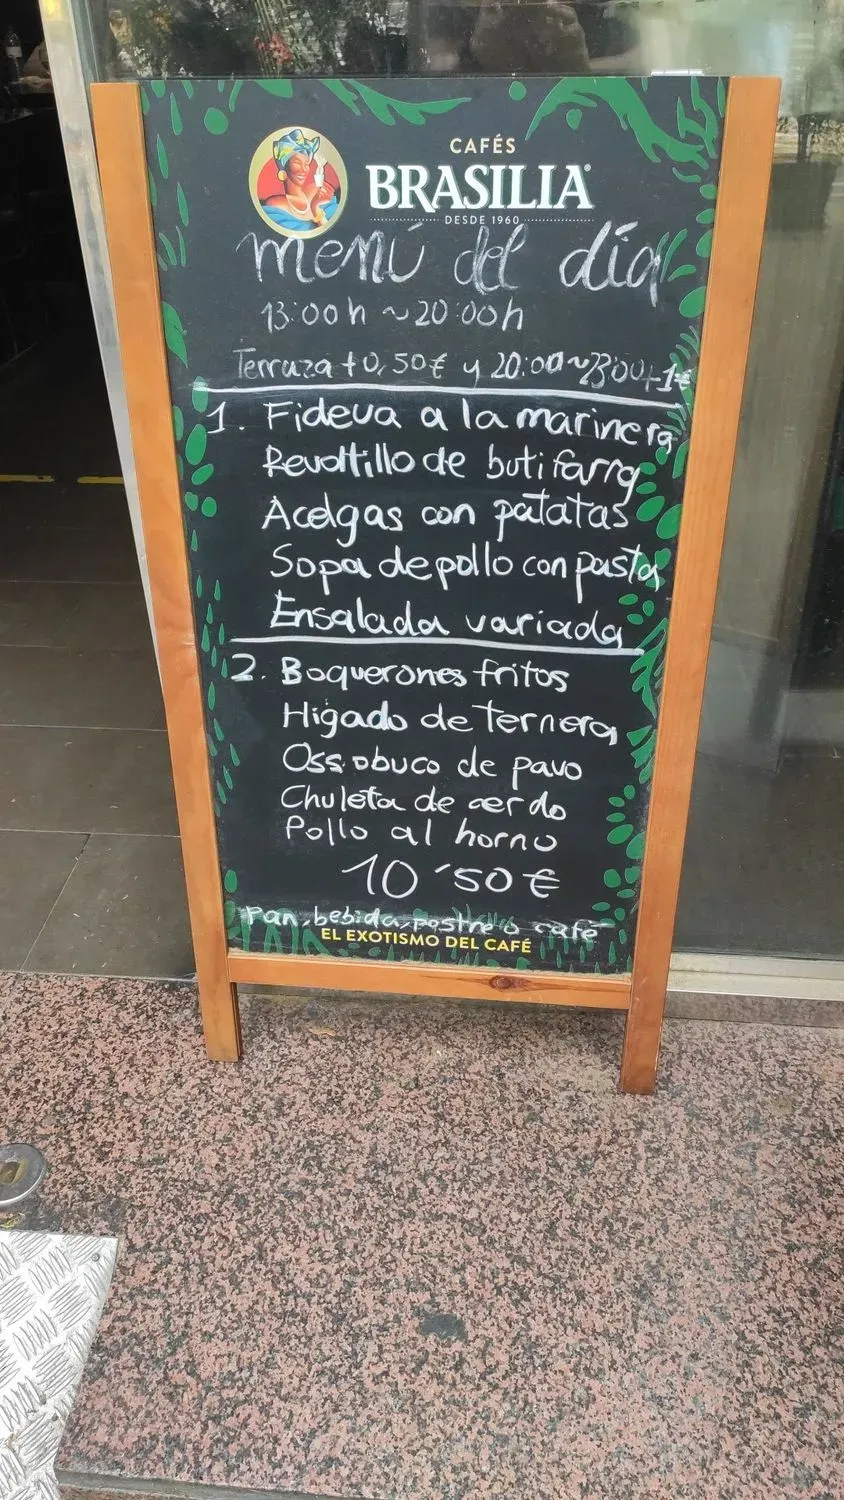 CAFÉS
BRASILIA
DESDE 1960
menú del día
13:00h ~ 20:00h
Terraza +0,50€ y 20:00~23:00+1€
1. Fideua a la marinera
Revoltillo de butifarra
Acelgas con patatas
Sopa de pollo con pasta
Ensalada variada
2. Boquerones fritos
Hígado de ternera
Ossobuco de pavo
Chuleta de cerdo
Pollo al horno
10'50€
Pan, bebida, postre o café
EL EXOTISMO DEL CAFÉ